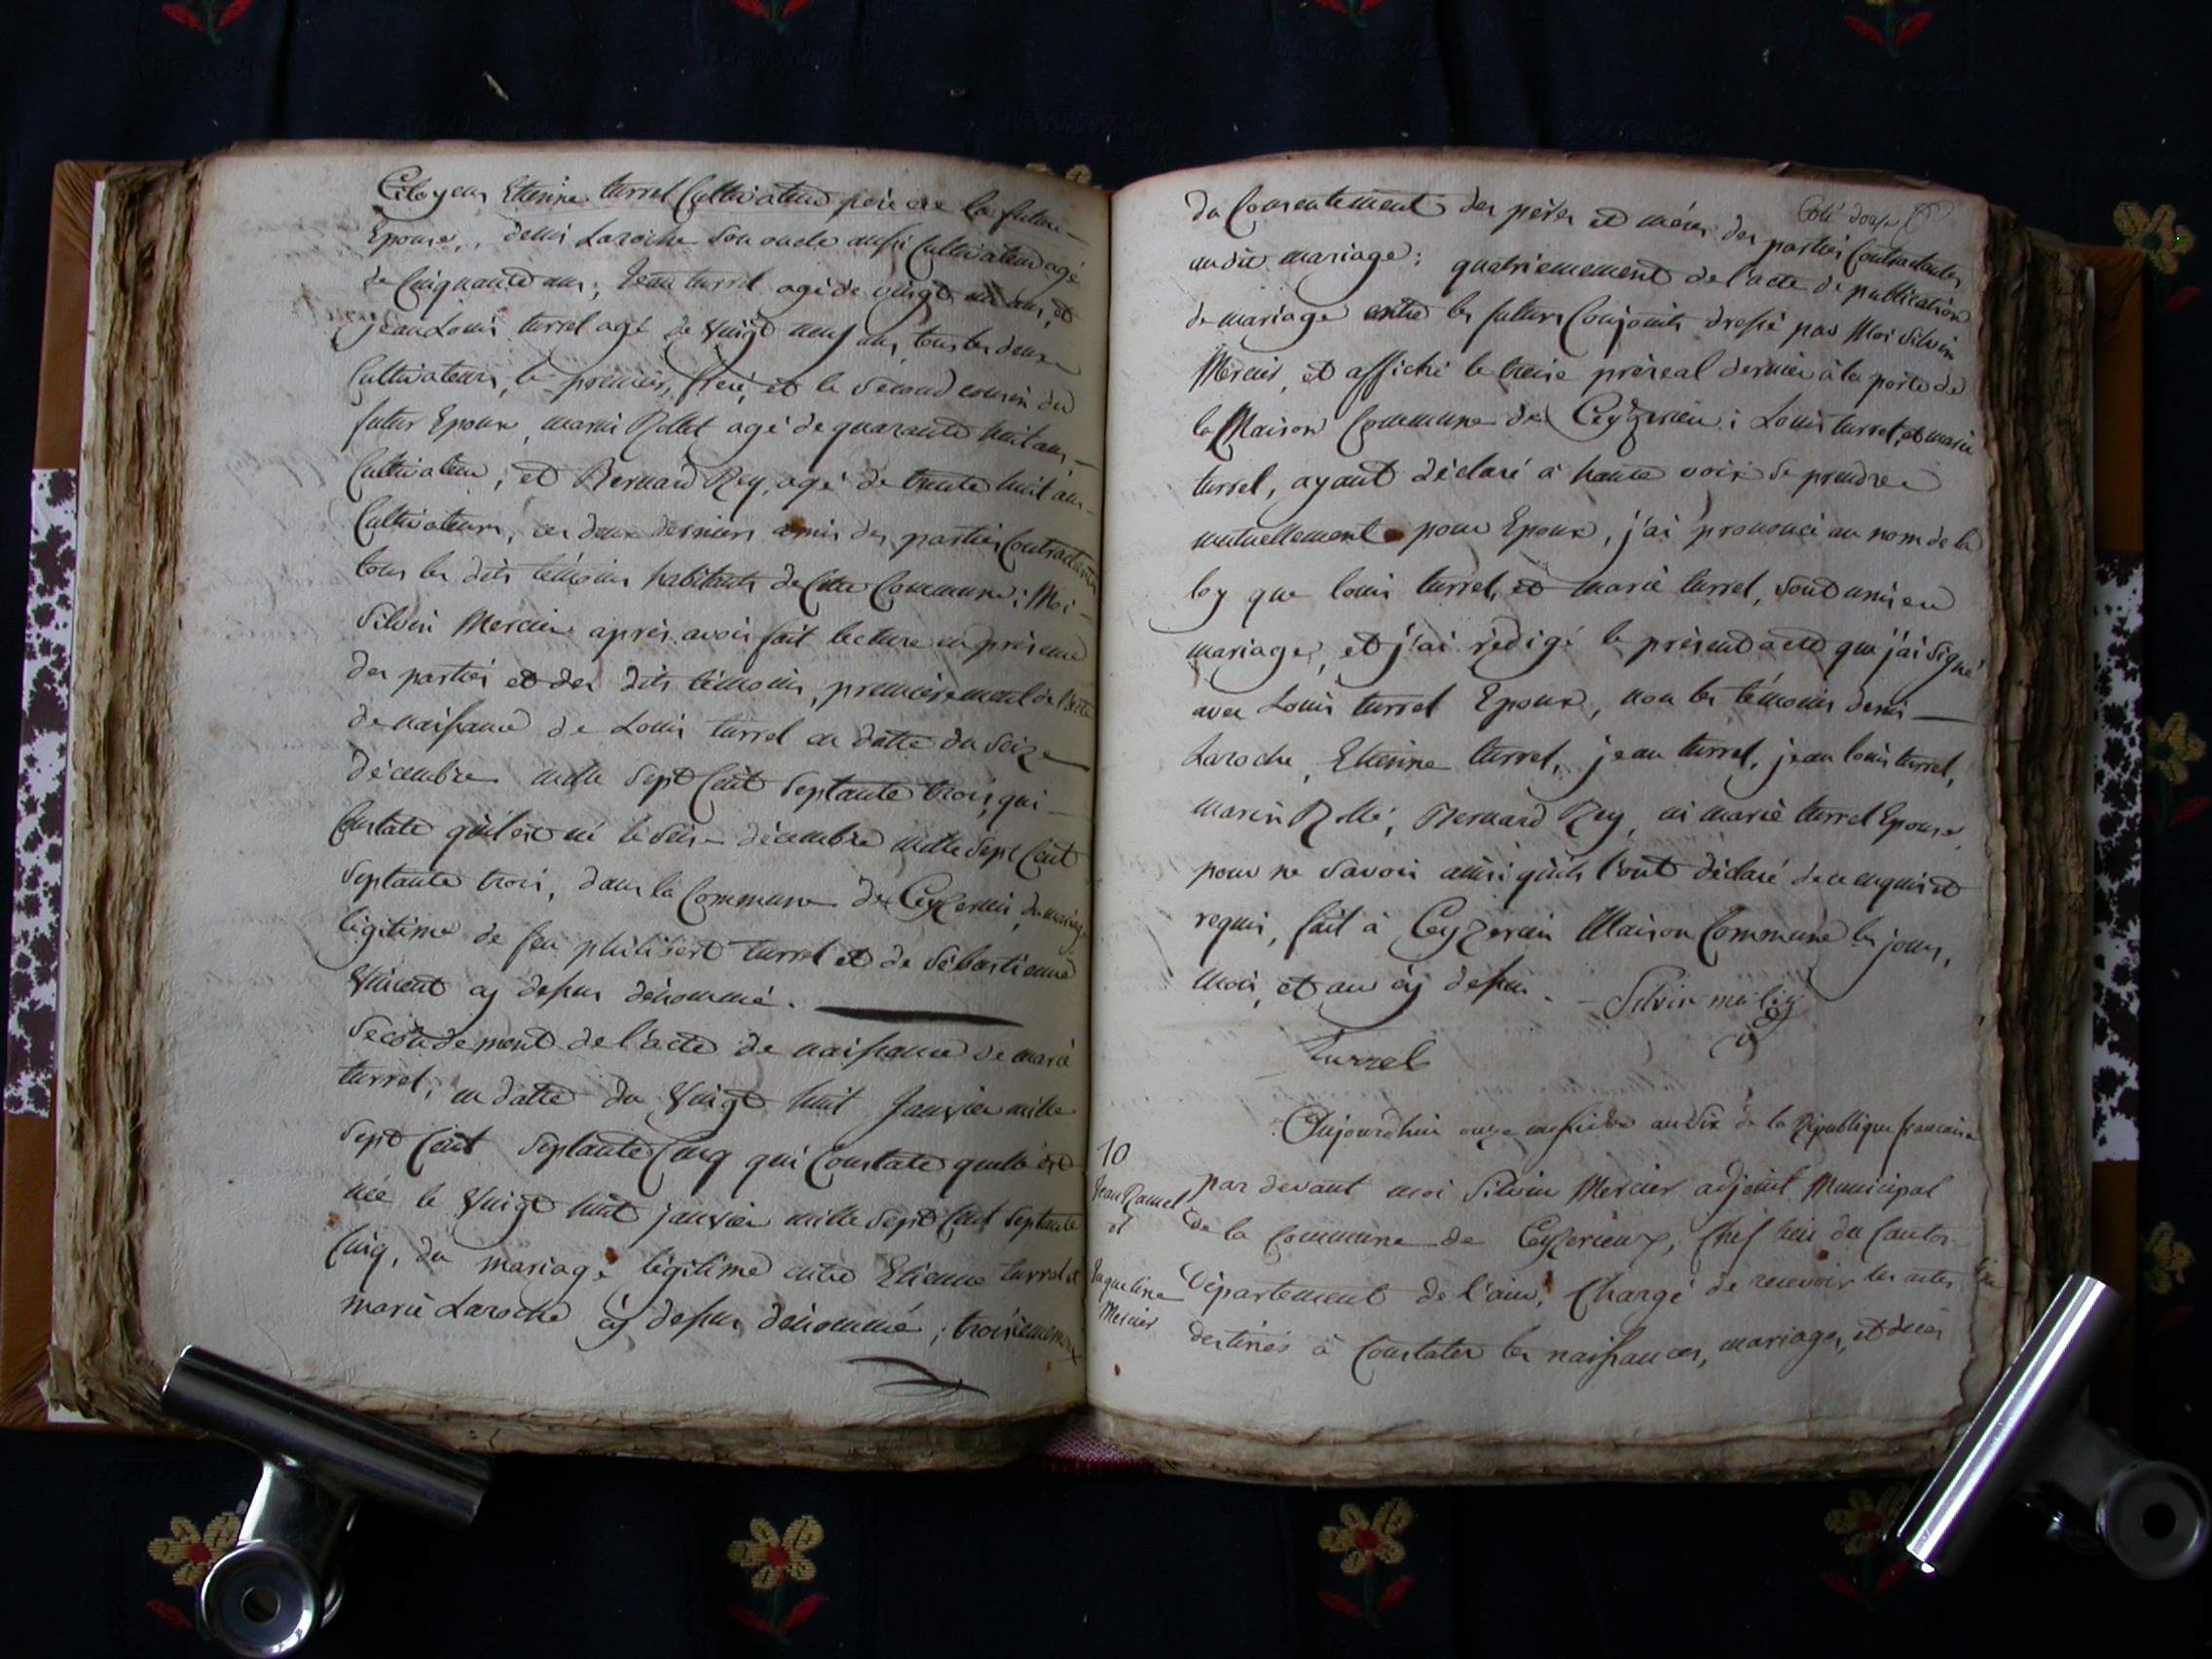 Citoyens Etienne turrel Cultivateur père de la future
Epouse, denis Laroche son oncle aussi Cultivateur agé
de Cinquante ans, Jean turrel agé de vingt ans, et
jean Louis turrel agé de vingt neuf ans, tous les deux
Cultivateurs, le premier, frere, et le Second cousin du
futur Epoux, marin Rollet agé de quarante huit ans
Cultivateur, et Bernard Rey, agé de trente huit ans
Cultivateurs, ces deux derniers amis des parties Contractantes
tous les dits témoins habitants de Cette Commune; Moi
Silvin Mercier après avoir fait lecture en présence
des parties et des dits témoins, premièrement de l'acte
de naissance de Louis turrel en datte du Seize
décembre mille Sept Cent Septante trois, qui
Constate qu'il est né le seize décembre mille Sept Cent
Septante trois, dans la Commune de Ceyzerieu, du mariage
légitime de feu philibert turrel et de Sébastienne
Vincent cy dessus dénommé.
Secondement de l'acte de naissance de marie
turrel, en datte du Vingt huit Janvier mille
Sept Cent Septante Cinq qui Constate quelle est
née le Vingt huit janvier mille Sept Cent Septante
Cinq, du mariage légitime entre Etienne turrel et
marie Laroche cy dessus dénommé; troisiemement
Coté douze
du Consentement des pères et mères des parties Contractantes
au dit mariage; quatriemement de l'acte de publication
de mariage entre les futurs Conjoints dressé par Moi Silvin
Mercier, et affiché le treize préréal dernier à la porte de
la Maison Commune de Ceyzerieu; Louis turrel, et marie
turrel, ayant déclaré à haute voix se prendre
mutuellement pour Epoux, j'ai prononcé au nom de la
loy que louis turrel, et marie turrel, sont unis en
mariage, et j'ai rédigé le présent acte que j'ai signé
avec Louis turrel Epoux, non les témoins denis
Laroche, Etienne turrel, jean turrel, jean louis turrel,
marin Rollé, Bernard Rey, ni marie turrel Epouse,
pour ne savoir ainsi qu'ils l'ont déclaré de ce enquis et
requis, fait à Ceyzerieu Maison Commune les jour,
mois, et an cy dessus. Silvin
Turrel
Aujourdhui onze messidor an dix de la République francaise
10
Jean
et
Jaqueline
Mercier
par devant moi Silvin Mercier adjoint Municipal
de la Commune de Ceyzerieux, Chef lieu du Canton
Département de l'ain, Chargé de recevoir les actes
destinés à Constater les naissances, mariages, et décès